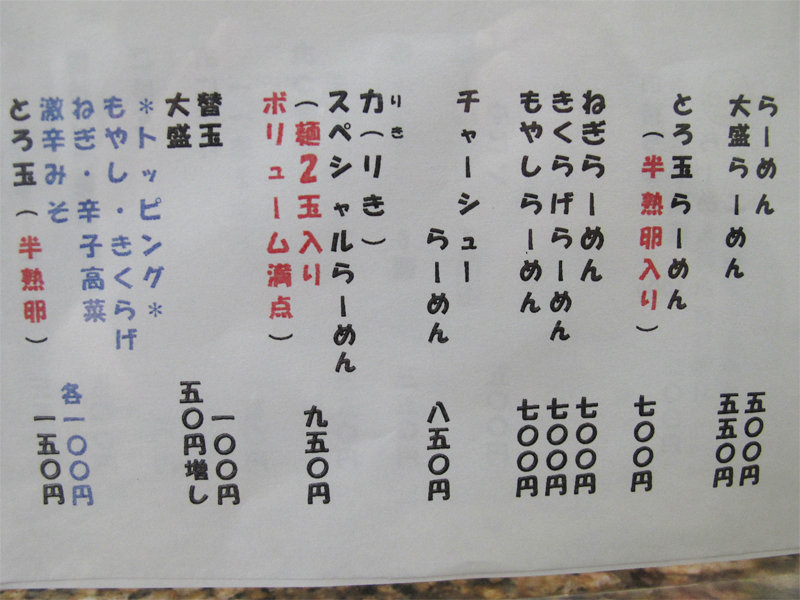 らーめん
五〇〇円
大盛らーめん
五五〇円
とろ玉らーめん
(半熟卵入り)
七〇〇円
ねぎらーめん
七〇〇円
きくらげらーめん
七〇〇円
もやしらーめん
七〇〇円
チャーシュー
らーめん
八五〇円
りき
力(りき)
スペシャルらーめん
(麺2玉入り
ボリューム満点)
九五〇円
替玉
一〇〇円
大盛
五〇円増し
*トッピング*
もやし・きくらげ
ねぎ・辛子高菜
激辛みそ
各一〇〇円
とろ玉(半熟卵)
一五〇円